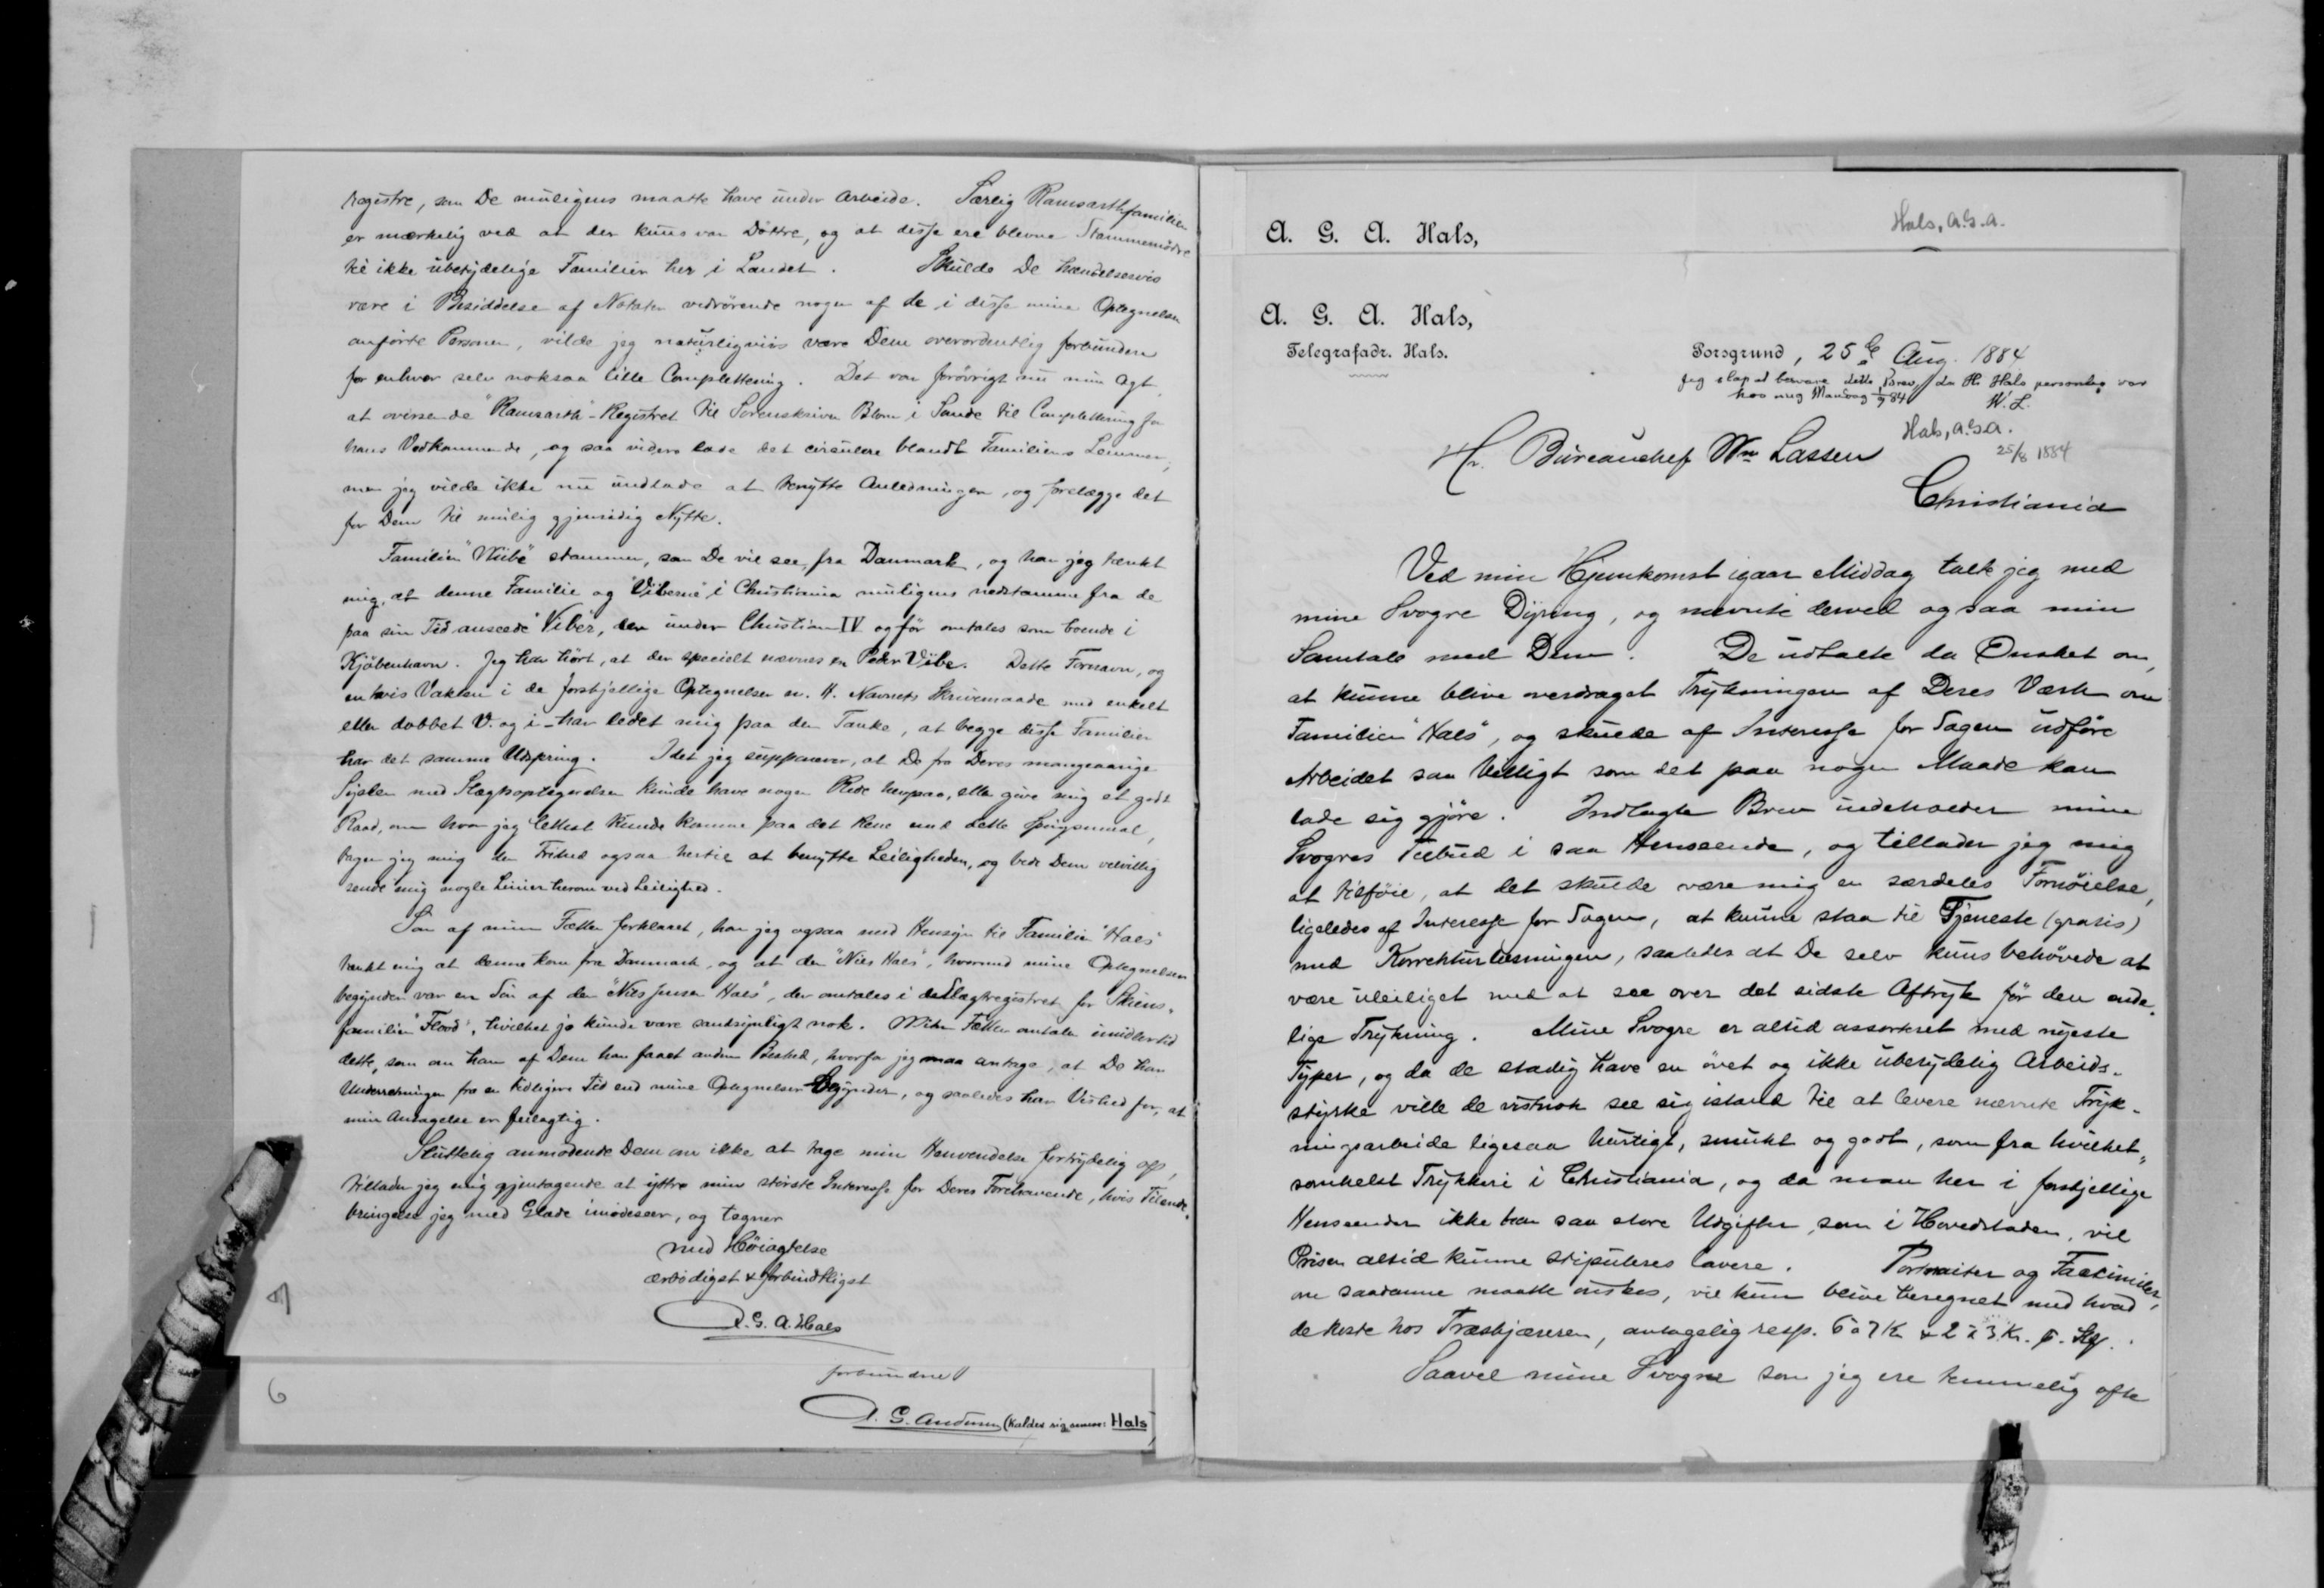 registre, som De muligens maatte have under Arbeide. Særlig Ramsarthfamilien
er mærkelig ved at der kuns var Døttre, og at disse ere blevne Stammemødre
til ikke ubetydelige Familier her i Landet. Skulde De hændelsesvis
være i Besiddelse af Notater vedrörende nogen af de i disse mine Optegnelser
anførte Personer, vilde jeg naturligviis være Dem overordentlig forbunden
for enhver selv noksaa lille Complettering. Det var forövrigt nu min Agt,
at oversende "Ramsarth"-Registret til Sorenskriver Blom i Sande til Complettering for
hans Vedkommende, og saa videre lade det circulere blandt Familiens Lemmer,
men jeg vilde ikke nu undlade at benytte Anledningen, og forelægge det
for Dem til mulig gjensidig Nytte.
Familien "Wiibe" stammer, som De vil see, fra Danmark, og har jeg tænkt
mig, at denne Familie og "Viberne" i Christiania muligens nedstamme fra de
paa sin Tid anseede "Viber", der under Christian IV og för omtales som boende i
Kjöbenhavn. Jeg har hört, at der specielt nævnes en Peder Vibe. Dette Fornavn, og
en hvis Vaklen i de forskjellige Optegnelser m. H. Navnets Skrivemaade med enkelt
eller dobbet V. og i - har ledet mig paa den Tanke, at begge disse Familier
har det samme Udspring. Idet jeg supponerer, at De fra Deres mangeaarige
Syslen med Slægtsoptegnelser kunde have nogen Rede herpaa, eller give mig et godt
Raad, om hvor jeg lettest kunde komme paa det Rene med dette Spörgsmaal,
tager jeg mig den Frihed ogsaa hertil at benytte Leiligheden, og bede Dem velvillig
sende mig nogle Linier herom ved Leilighed.
Som af min Fætter forklaret, har jeg ogsaa med Hensyn til Familien "Hals"
tænkt mig at denne kom fra Danmark, og at den "Niels Hals", hvormed mine Optegnelser
begynder var en Sön af den "Niels Jensen Hals", der omtales i det Slægtregistret for Skiens-
familien "Flood", hvilket jo kunde være sandsynligt nok. Min Fætter omtaler imidlertid
dette, som om han af Dem har faaet anden Besked, hvorfor jeg maa antage, at De har
Underretninger fra en tidligere Tid end mine Optegnelser begynder, og saaledes har Vished for, at
min Antagelse er feilagtig.
Sluttelig anmodende Dem om ikke at tage min Henvendelse fortrydelig op,
tillader jeg mig gjentagende at yttre min störste Interesse for Deres Forehavende, hvis Tilende-
bringelse jeg med Glæde imödeseer, og tegner
med Höiagtelse
ærbödigst & forbindtligst
A. G. A. Hals
7
forbundne
6
A. G. Andersen (kalder sig senere: Hals)
Hals, A.G.A.
A. G. A. Hals,
A. G. A. Hals,
Telegrafadr. Hals.
Porsgrund, 25de Aug. 1884
Jeg slap at besvare dette Brev, da Hr. Hals personlig var
hos mig Mandag 1/9 84 W. L.
Hals, A.G.A.
25/8 1884
Hr. Büreauchef Wm Lassen
Christiania
Ved min Hjemkomst igaar Middag talte jeg med
mine Svogre Dyring, og nævnte derved ogsaa min
Samtale med Dem. De udtalte da Önsket om,
at kunne blive overdraget Trykningen af Deres Værk om
Familien "Hals", og skulde af Interesse for Sagen udföre
Arbeidet saa billigt som det paa nogen Maade kan
lade sig gjöre. Indlagte Brev indeholder mine
Svogres Tilbud i saa Henseende, og tillader jeg mig
at tilföie, at det skulde være mig en særdeles Fornöielse,
ligeledes af Interesse for Sagen, at kunne staa til Tjeneste (gratis)
med Korrekturlæsningen, saaledes at De selv kuns behövede at
være uleiliget med at see over det sidste Aftryk för den ende-
lige Trykning. Mine Svogre er altid assorteret med nyeste
Typer, og da de stadig have en övet og ikke ubetydelig Arbeids-
styrke ville de vistnok see sig istand til at levere nævnte Tryk-
ningsarbeide ligesaa hurtigt, smukt og godt, som fra hvilket-
somhelst Trykkeri i Christiania, og da man her i forskjellige
Henseender ikke har saa store Udgifter, som i Hovedstaden, vil
Prisen altid kunne stipuleres lavere. Portraiter og Facsimiler,
om saadanne maatte önskes, vil kun blive beregnet med hvad
de koste hos Træskjæreren, antagelig resp. 6 à 7 Kr. & 2 à 3 Kr. p. Stk.
Saavel mine Svogre som jeg ere temmelig ofte